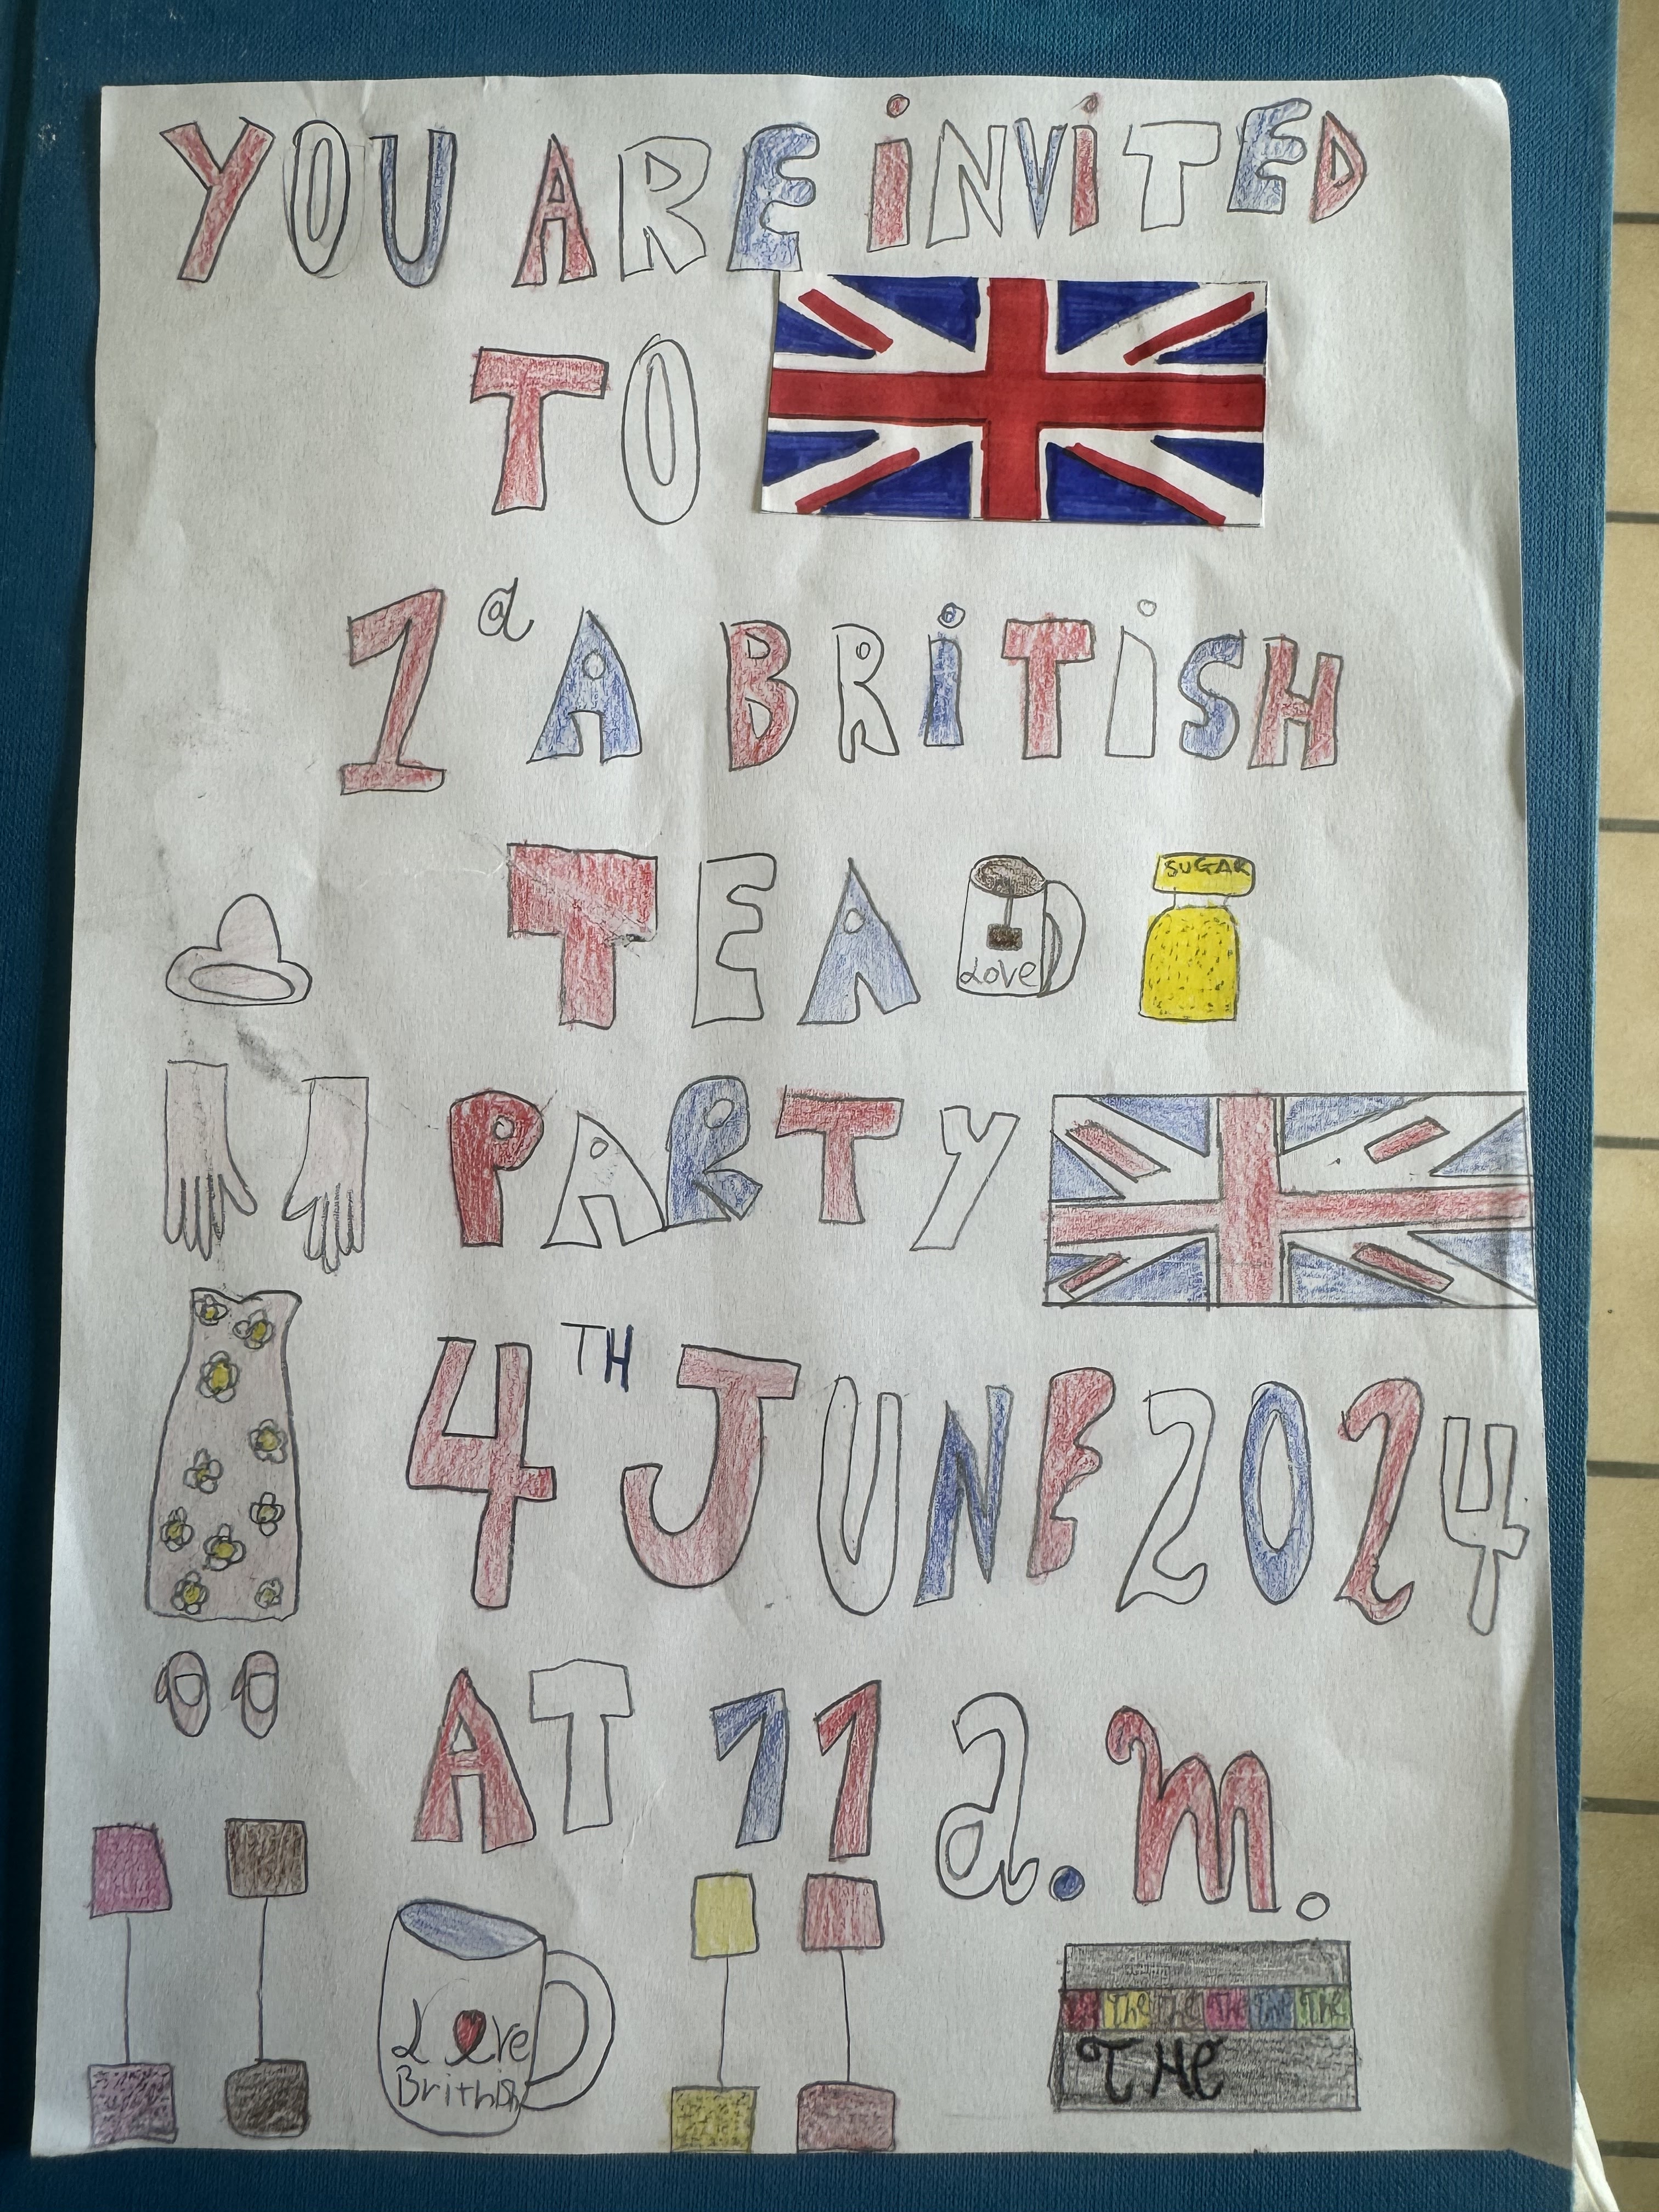 YOU ARE iNViTED
TO
1ª A BRiTiSH
TEA
Love
SUGAR
PARTY
4TH JUNE 2024
AT 11 a.m.
Love
Brithish
The The The The The
THe